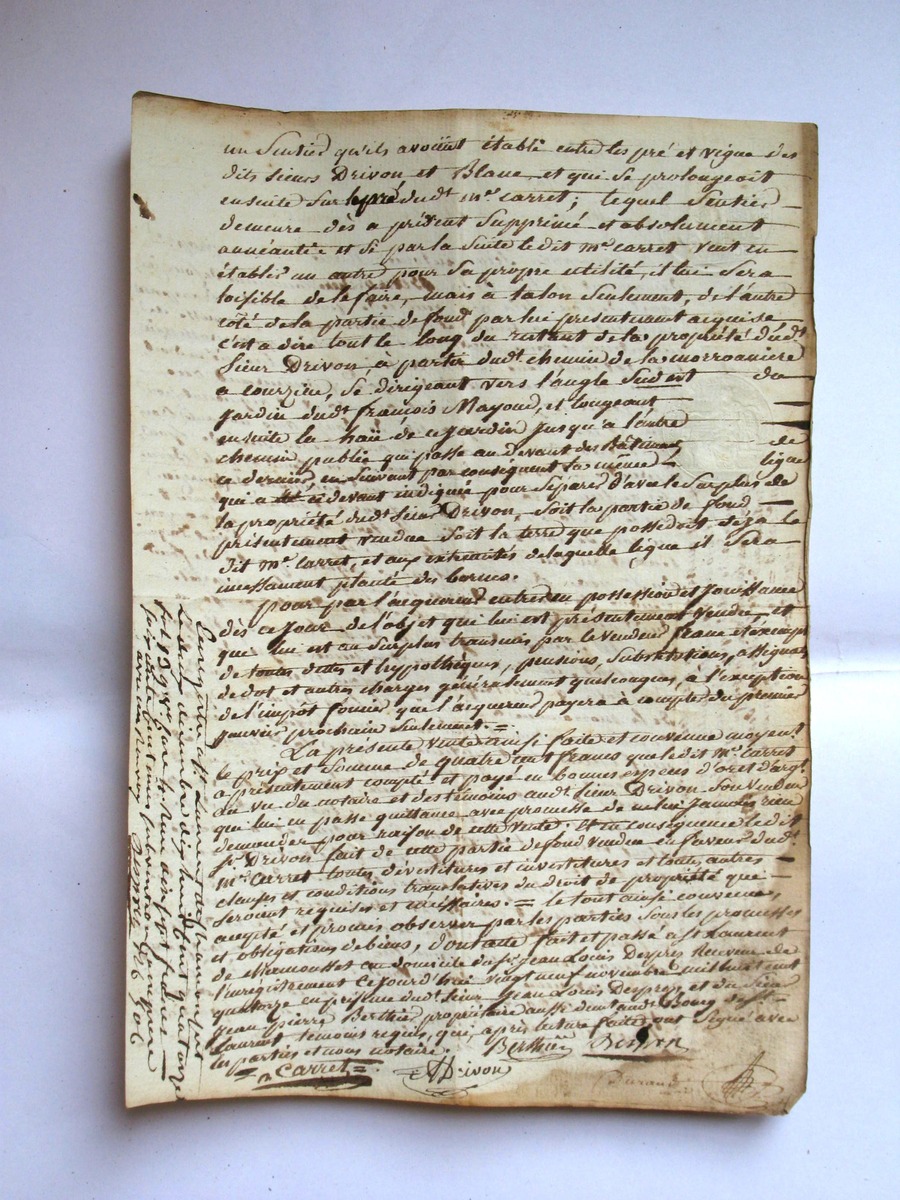 un Sentier qu'ils avoient établi entre les pré et vigne des
dits sieurs Drivon et Blanc, et qui se prolongeoit
ensuite sur le pré dudt. mr. Carret; lequel Sentier
demeure dès a présent Supprimé et absolument
annéantie et si par la suite le dit mr. Carret veut en
établir un autre pour sa propre utilité, il lui sera
loisible de le faire, mais à talon seulement, de l'autre
côté de la partie de fond par lui présentement acquise
c'est a dire tout le long du restant de la propriété dudt.
sieur Drivon, à partir dudt. chemin de la
a courzieu, se dirigeant vers l'angle Sud est du
Jardin dudt. françois Mayoud, et longeant
ensuite la haïe de ce Jardin jusqu'a l'autre
chemin public qui passe au devant des Bâtimens de
ce dernier, en suivant par conséquent la même ligne
qui a été ci devant indiquée pour séparer d'avec le Surplus de
la propriété dudt. sieur Drivon, soit la partie de fond
présentement vendue soit la terre que possedoit déja le
dit mr. Carret, et aux extremités de laquelle ligne il sera
incessament planté des bornes.
pour par l'acquereur entrer en possession et Jouissance
dès ce jour de l'objet qui lui est présentement vendu, et
qui lui est au surplus transmis par le vendeur franc et exempt
de toutes dettes et hypothèques, pensions, substitutions, assignats
de dot et autres charges généralement quelconques, à l'exception
de l'impôt foncier que l'acquereur payera à compter du premier
janvier prochain seulement. =
La présente vente ainsi faite et convenue moyent.
le prix et somme de quatre cent francs que le dit mr. Carret
a présentement compté et payé en bonnes espèces d'or et d'argt.
au vu du notaire et des témoins audt. sieur Drivon son vendeur
qui lui en passe quittance avec promesse de ne lui jamais rien
demander pour raison de cette vente. et en conséquence le dit
sr. Drivon fait de cette partie de fond vendue en faveur dudt.
mr. Carret toutes divestitures et investitures et toutes autres
clauses et conditions translatives du droit de propriété que
seroient requises et nécessaires. = le tout ainsi convenu,
accepté et promis observer par les parties sous les promesses
et obligations de biens, dont acte fait et passé a st. Laurent
de chamousset au domicile du sr. Jean Louis Despres Receveur de
l'enregistrement ce jourd'hui vingt neuf novembre mil huit cent
quatorze en présence dudt. sieur Jean Louis Despres et du sieur
Jean Pierre Berthier propriétaire aussi demt. audt. Bourg de st.
Laurent temoins requis, qui, après lecture faite ont Signé avec
les parties et nous notaire.
Berthier
Carret
Drivon
Durand
Enregistré à st. Laurent de chamousset
Le deux décembre dix huit cent quatorze
fol. 139 vo.